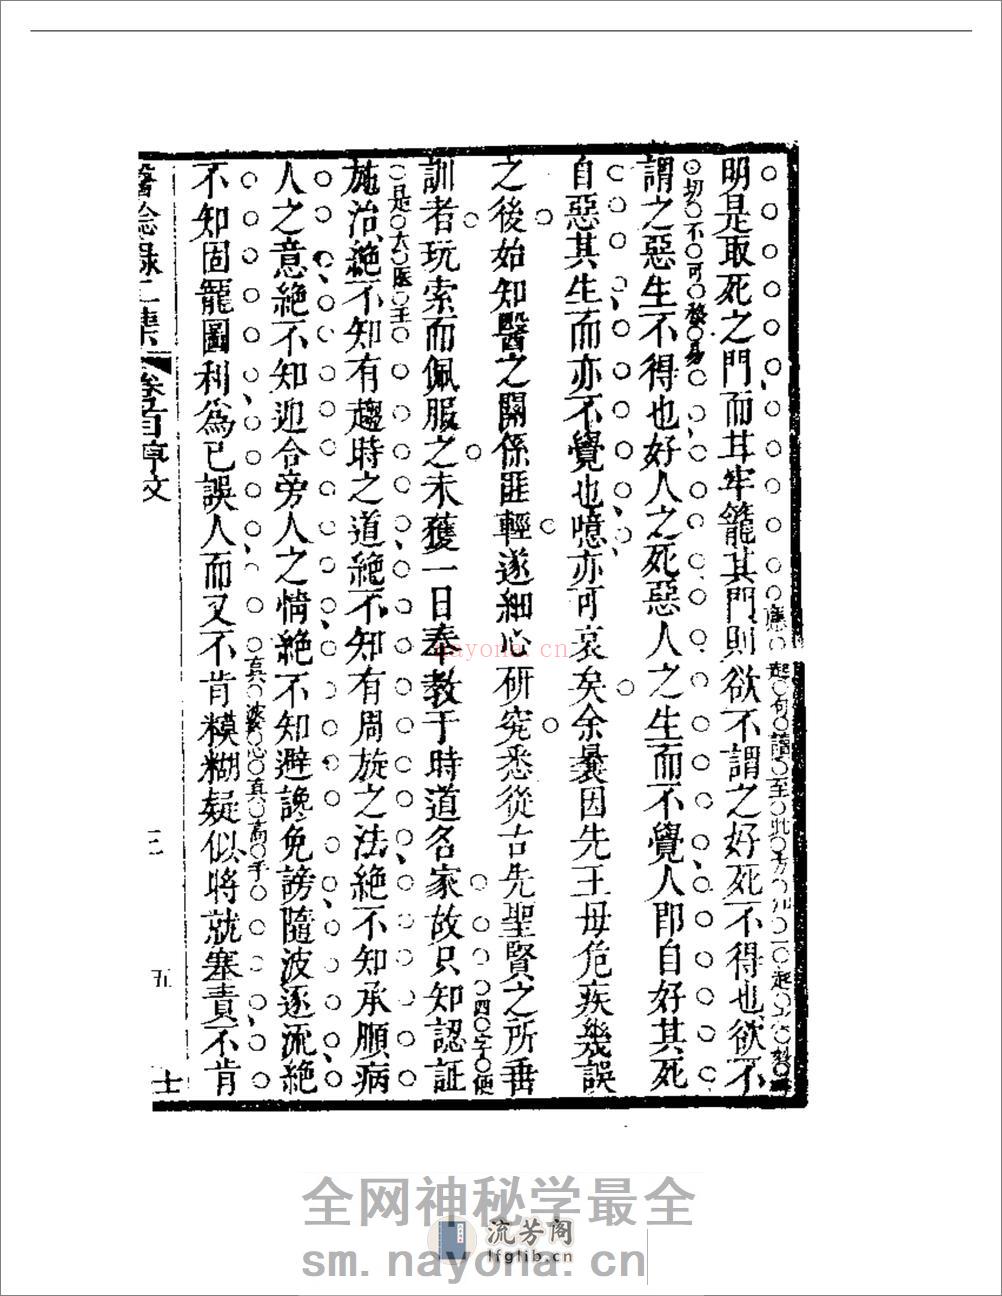 明是取死之門而甘牢籠其門則欲不謂之好死不得也欲不
謂之惡生不得也好人之死惡人之生而不覺人即自好其死
切不可發易
自惡其生而亦不覺也噫亦可哀矣余曩因先王母危疾幾誤
之後始知醫之關係匪輕遂細心研究悉從古先聖賢之所垂
訓者玩索而佩服之未獲一日奉教于時道名家故只知認証
四字便
是大医王
施治絕不知有趨時之道絕不知有周旋之法絕不知承順病
人之意絕不知迎合旁人之情絕不知避讒免謗隨波逐流絕
不知固寵圖利為己誤人而又不肯糢糊疑似將就塞責不肯
真婆心真高手
卷首序文
三
五
nayona.cn
全网神秘学最全
流芳阁
lfglib.cn
sm.nayona.cn